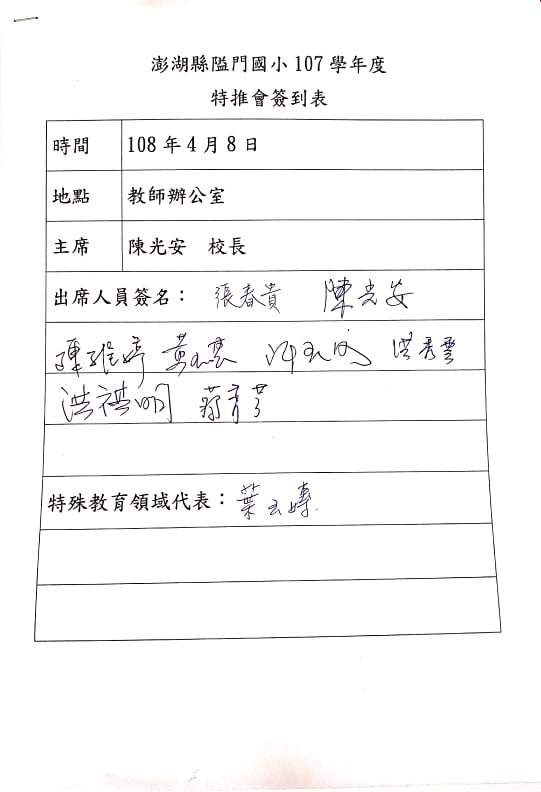 澎湖縣隘門國小 107 學年度
特推會簽到表
時間 108 年 4 月 8 日
地點 教師辦公室
主席 陳光安 校長
出席人員簽名： 張春貴 陳光安
陳雅婷 洪秀雲
洪祺明
特殊教育領域代表： 葉